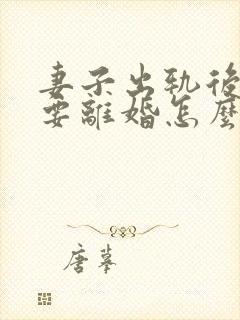 妻子出軌後
要離婚怎麼
唐摹